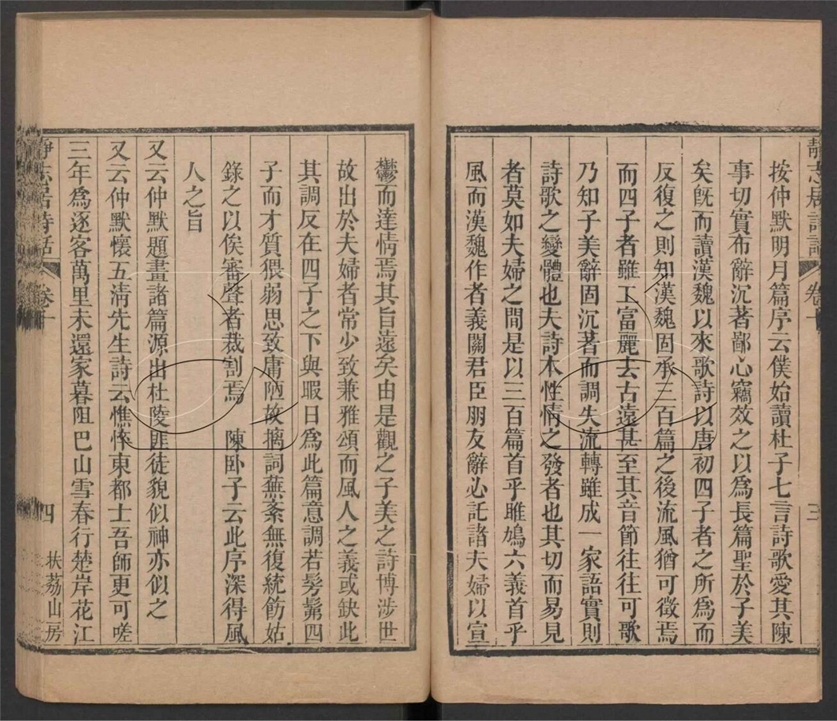 靜志居詩話 卷十 三
按仲默明月篇序云僕始讀杜子七言詩歌愛其陳
事切實布辭沉著鄙心竊效之以爲長篇聖於子美
矣旣而讀漢魏以來歌詩以唐初四子者之所爲而
反復之則知漢魏固承三百篇之後流風猶可徵焉
而四子者雖工富麗去古遠甚至其音節往往可歌
乃知子美辭固沉著而調失流轉雖成一家語實則
詩歌之變體也夫詩本性情之發者也其切而易見
者莫如夫婦之間是以三百篇首乎雎鳩六義首乎
風而漢魏作者義關君臣朋友辭必託諸夫婦以宣
鬱而達情焉其旨遠矣由是觀之子美之詩博涉世
故出於夫婦者常少致兼雅頌而風人之義或缺此
其調反在四子之下與暇日爲此篇意調若髣髴四
子而才質猥弱思致庸陋故摛詞蕪紊無復統飭姑
錄之以俟審聲者裁割焉 陳卧子云此序深得風
人之旨
又云仲默題畫諸篇源出杜陵匪徒貌似神亦似之
又云仲默懷五淸先生詩云憔悴東都士吾師更可嗟
三年爲逐客萬里未還家暮阻巴山雪春行楚岸花江
靜志居詩話 卷十 四 扶荔山房